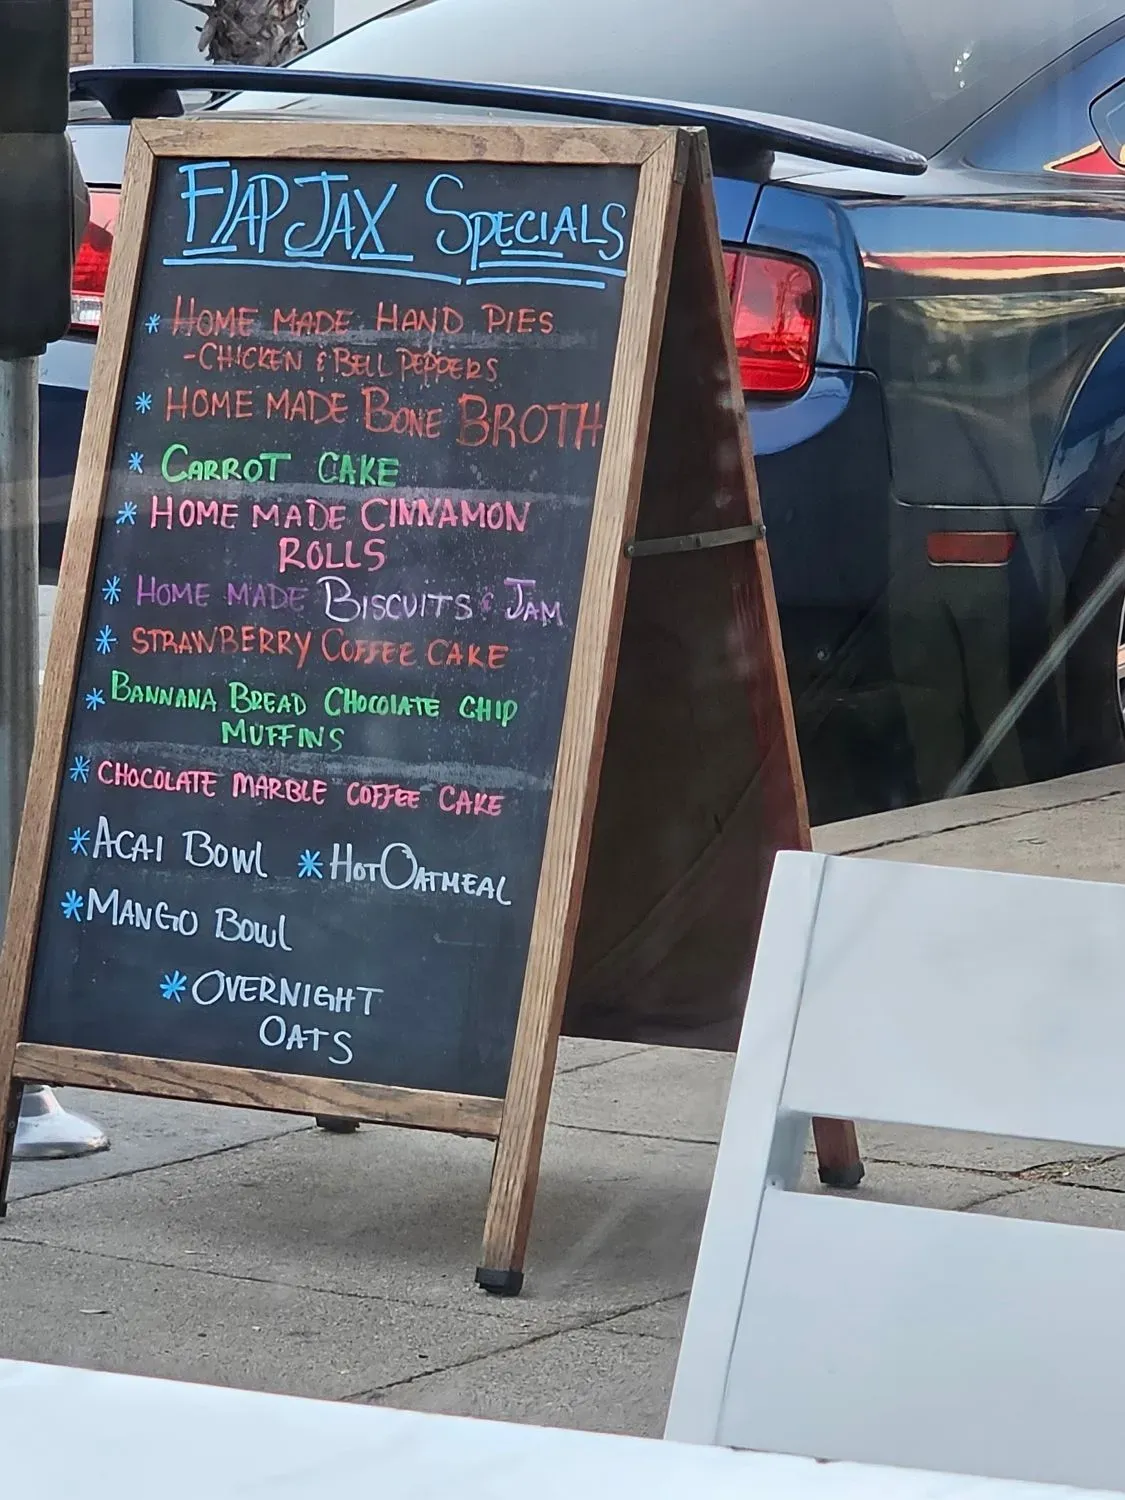 FLAP JAX SPECIALS
* HOME MADE HAND PIES
-CHICKEN & BELL PEPPERS
* HOME MADE BONE BROTH
* CARROT CAKE
* HOME MADE CINNAMON
ROLLS
* HOME MADE BISCUITS & JAM
* STRAWBERRY COFFEE CAKE
* BANNANA BREAD CHOCOLATE CHIP
MUFFINS
* CHOCOLATE MARBLE COFFEE CAKE
* ACAI BOWL * HOT OATMEAL
* MANGO BOWL
* OVERNIGHT
OATS